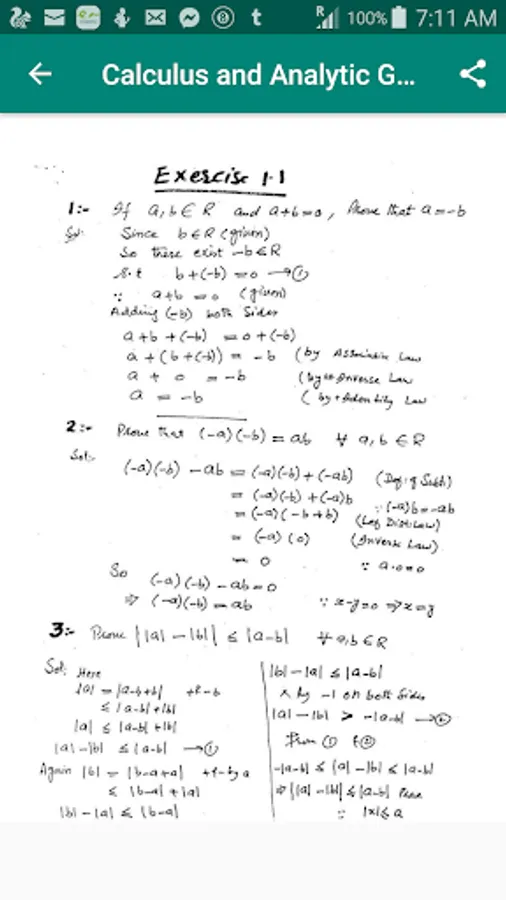 R 100% 7:11 AM
Calculus and Analytic G...
Exercise 1.1
1:- If a, b ∈ R and a+b=0, Prove that a=-b
Sol: Since b∈R (given)
So there exist -b∈R
s.t b+(-b)=0 →①
∵ a+b=0 (given)
Adding (-b) both Sides
a+b+(-b) = 0+(-b)
a+(b+(-b)) = -b (by Associative Law
a + 0 = -b (by Inverse Law
a = -b ( by + Identity Law
2:- Prove that (-a)(-b) = ab ∀ a,b ∈ R
Sol:-
(-a)(-b) - ab = (-a)(-b) + (-ab) (Def: of Subt:)
= (-a)(-b) + (-a)b ∵(-a)b=-ab
= (-a)(-b+b) (Lef Dist: Law)
= (-a)(0) (Inverse Law)
= 0 ∵ a.0=0
So
(-a)(-b) - ab=0
⇒ (-a)(-b) = ab ∵ x-y=0 ⇒x=y
3:- Prove ||a| - |b|| ≤ |a-b| ∀ a,b∈R
Sol: Here
|a| = |a-b+b| +&-b
≤ |a-b|+|b|
|a| ≤ |a-b|+|b|
|a|-|b| ≤ |a-b| →①
Again |b| = |b-a+a| +&-by a
≤ |b-a|+|a|
|b|-|a| ≤ |b-a|
|b|-|a| ≤ |a-b|
× by -1 on both Sides
|a|-|b| > -|a-b| →②
From ① &②
-|a-b| ≤ |a|-|b| ≤ |a-b|
⇒||a|-|b|| ≤|a-b|
∵ |x|≤a